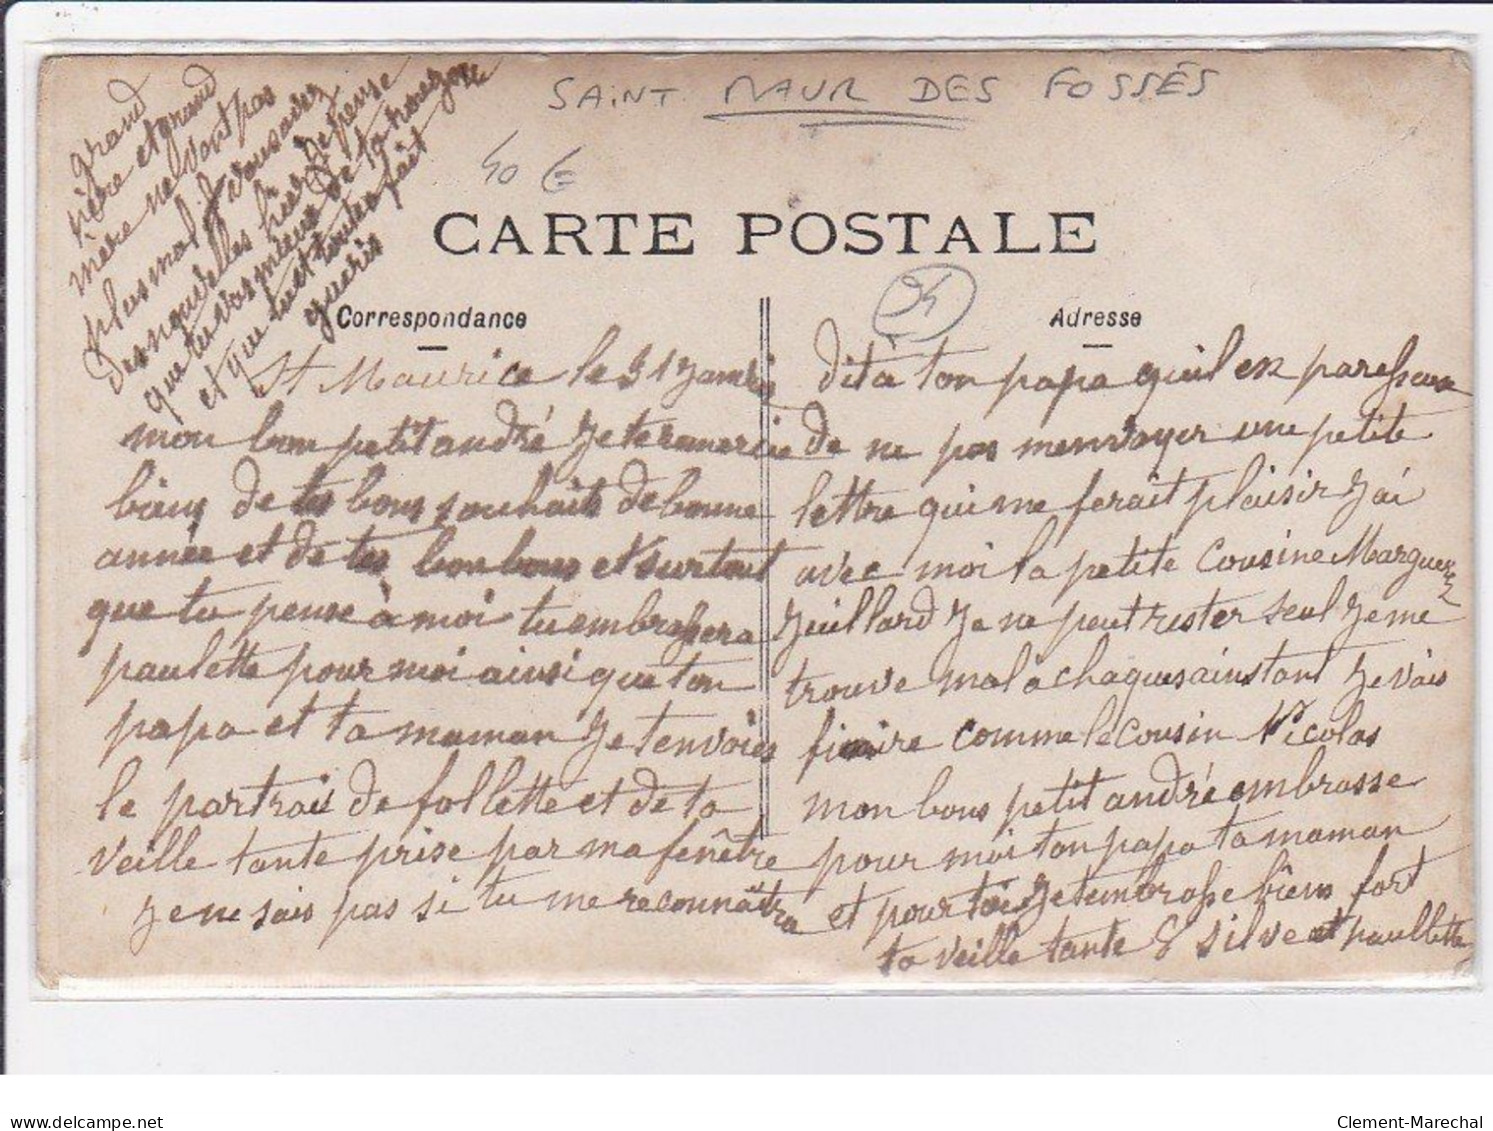 SAINT. MAUR DES FOSSÉS
40 €
94
CARTE POSTALE
Correspondance
Adresse
grand
père et grand
mère ne vont pas
plus mal. Vous aviez
des nouvelles hier Je pense
que tu vas mieux de ta rougeole
et que tu et toutes fait
gueris
St Maurice le 31 Janvier
mon bon petit andré Je te remercie
biens de tes bons souhaits de bonne
année et de tes bonbons et surtout
que tu pense à moi tu embrassera
paulette pour moi ainsi que ton
papa et ta maman Je t'envoies
le portrais de follette et de ta
veille tante prise par ma fenêtre
Je ne sais pas si tu me reconnaîtra
dit à ton papa quil ex paresseux
de ne pas menvoyer une petite
lettre qui me ferait plaisir J'ai
avec moi la petite Cousine Marguerite
Juillard Je ne peut rester seul Je me
trouve mal a chaques ainstant Je vais
finire comme le cousin Nicolas
mon bons petit andré embrasse
pour moi ton papa ta maman
et pour toi Je tembrasse biens fort
ta veille tante S silve et paullette
Clement-Marechal